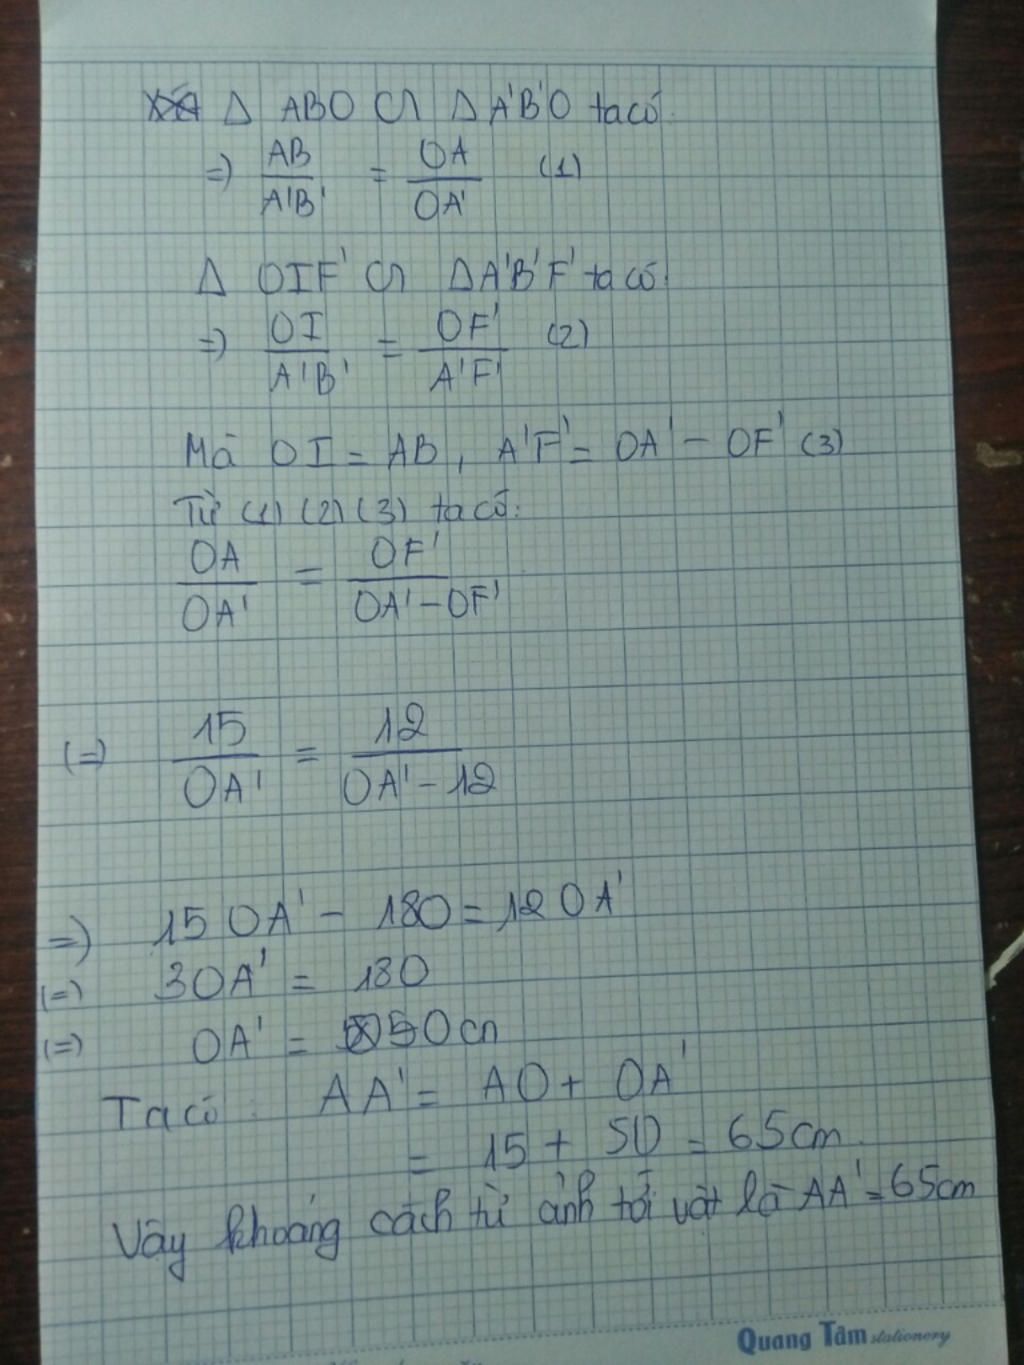 Δ ABO ∽ Δ A'B'O ta có:
=) AB/A'B' = OA/OA' (1)
Δ OIF' ∽ ΔA'B'F' ta có:
=) OI/A'B' = OF'/A'F' (2)
Mà OI = AB, A'F' = OA' - OF' (3)
Từ (1) (2) (3) ta có:
OA/OA' = OF'/OA'-OF'
(=) 15/OA' = 12/OA'-12
=) 15 OA' - 180 = 12 OA'
(=) 3OA' = 180
(=) OA' = 50cn
Ta có: AA' = AO + OA'
= 15 + 50 = 65cm.
Vậy khoảng cách từ ảnh tới vật là AA' = 65cm
Quang Tâm stationery